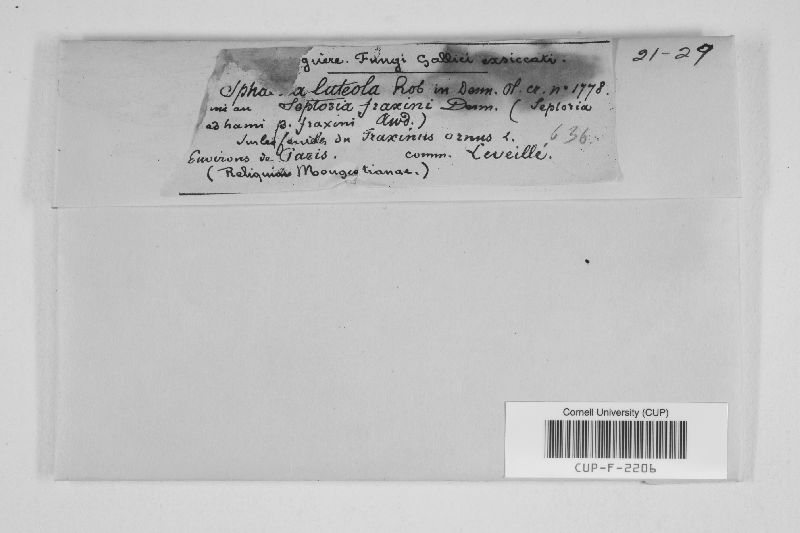 guère. Fungi Gallici exsiccati.
21-29
Spha a luteola Rob in Desm. Pl. cr. n° 1778.
Septoria fraxini Desm. (Septoria
β. fraxini Awd.)
636
Sur les feuilles du Fraxinus ornus L.
Environs de Paris. comm. Leveillé.
(Reliquiae Mougeotianae.)
Cornell University (CUP)
CUP-F-2206